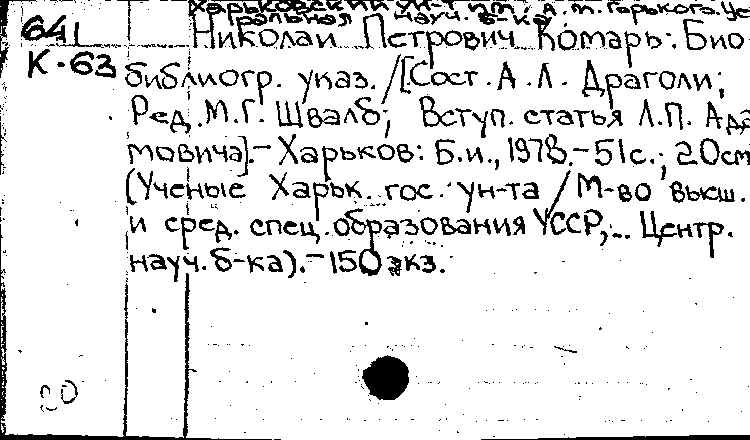 Харьковский ун-т им. А. М. Горького. Це
ральная науч. б-ка
641 Николай Петрович Комарь: Био
К-63 библиогр. указ. / [Сост. А. Л. Драголи;
Ред. М.Г. Швалб; Вступ. статья Л.П. Ада
мовича]. - Харьков: Б.и., 1978. - 51с.; 20см
(Ученые Харьк. гос. ун-та / М-во высш.
и сред. спец. образования УССР,... Центр.
науч. б-ка). - 150 экз.
20